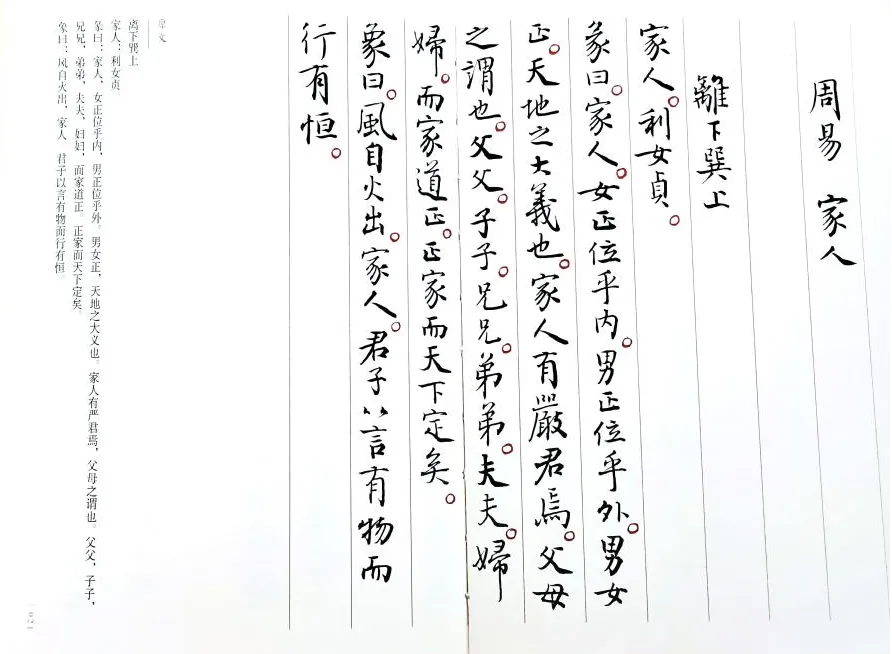 周易 家人
離下巽上
家人。利女貞。
彖曰。家人。女正位乎内。男正位乎外。男女
正。天地之大義也。家人有嚴君焉。父母
之謂也。父父。子子。兄兄。弟弟。夫夫。婦
婦。而家道正。正家而天下定矣。
象曰。風自火出。家人。君子以言有物而
行有恒。
原文
离下巽上
家人：利女贞
彖曰：家人，女正位乎内，男正位乎外。男女正，天地之大义也。家人有严君焉，父母之谓也。父父，子子，
兄兄，弟弟，夫夫，妇妇，而家道正。正家而天下定矣。
象曰：风自火出，家人　君子以言有物而行有恒